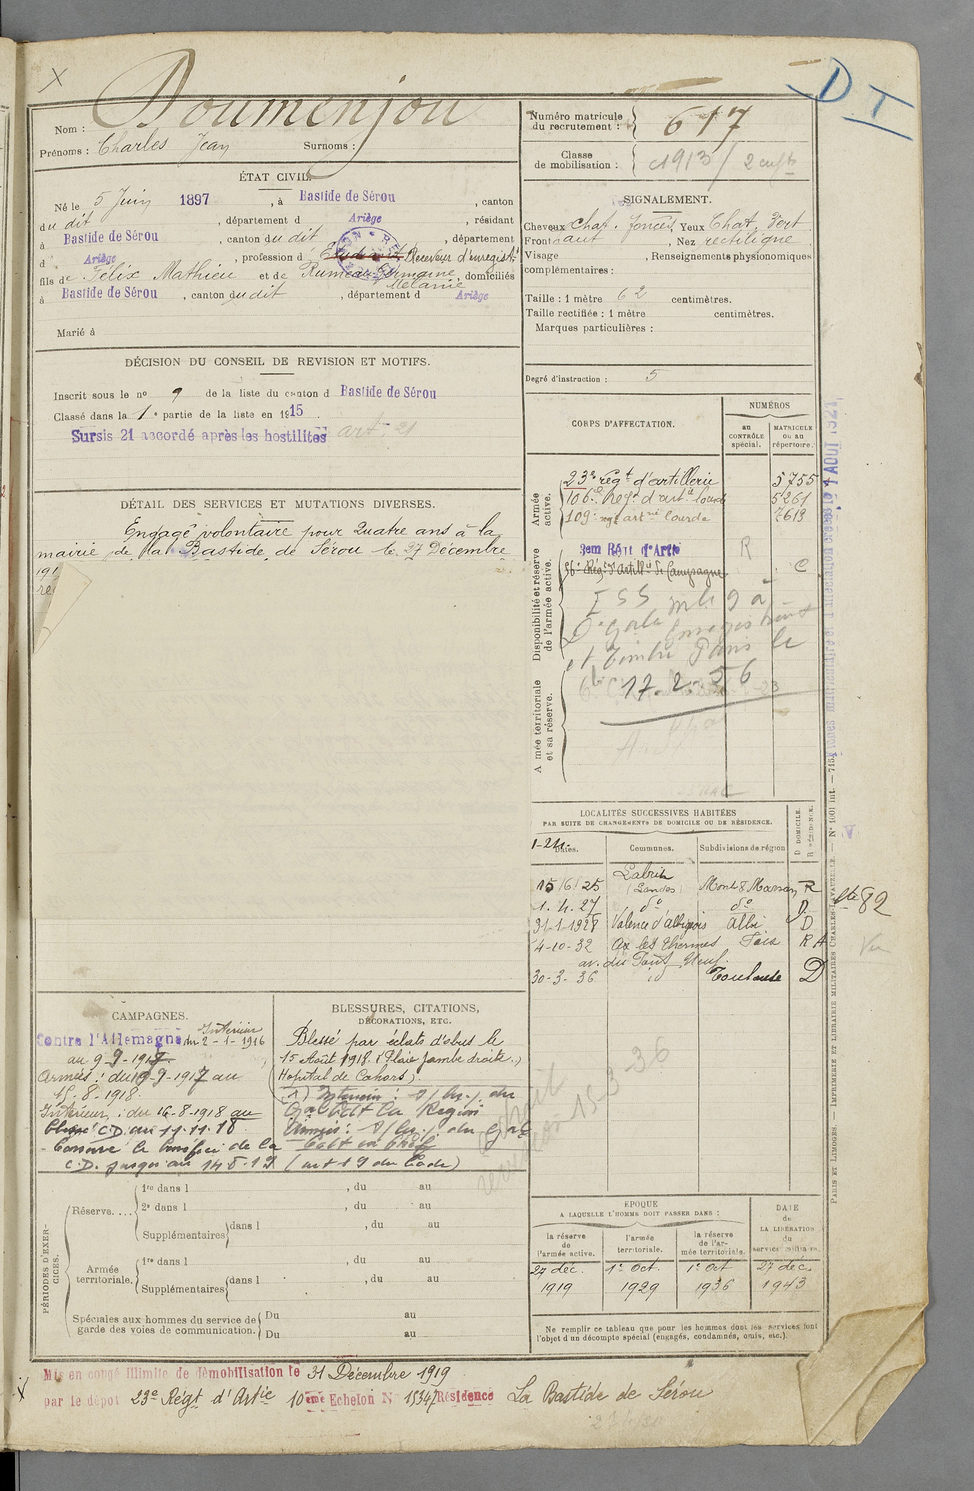 X
D T
Nom : Doumenjou
Prénoms : Charles Jean Surnoms :
ÉTAT CIVIL.
Né le 5 Juin 1897, à Bastide de Sérou, canton
du dit, département d Ariège, résidant
à Bastide de Sérou, canton du dit, département
d Ariège, profession d Receveur d'enregist
fils de Félix Mathieu et de Rumeau Germaine Mélanie, domiciliés
à Bastide de Sérou, canton du dit, département d Ariège
Marié à
DÉCISION DU CONSEIL DE REVISION ET MOTIFS.
Inscrit sous le no 9 de la liste du canton d Bastide de Sérou
Classé dans la 1e partie de la liste en 1915
Sursis 21 accordé après les hostilités art. 21
DÉTAIL DES SERVICES ET MUTATIONS DIVERSES.
Engagé volontaire pour Quatre ans à la
mairie de La Bastide de Sérou le 27 Décembre
191
CAMPAGNES.
Contre l'Allemagne Intérieur du 2-1-1916
au 9-9-1917
Armées : du 10-9-1917 au
15-8-1918
Intérieur : du 16-8-1918 au
C.D. au 11.11.18
C.D. jusqu'au (art 19 du Code)
BLESSURES, CITATIONS,
DÉCORATIONS, ETC.
Blessé par éclats d'obus le
15 Août 1918. (Plaie jambe droite.)
Hôpital de Cahors).
PÉRIODES D'EXERCICES.
Réserve....
1re dans l , du au
2e dans l , du au
Supplémentaires dans l , du au
Armée territoriale.
1re dans l , du au
Supplémentaires dans l , du au
Spéciales aux hommes du service de garde des voies de communication.
Du au
Du au
Mis en congé illimité de démobilisation le 31 Décembre 1919
par le dépôt 23e Régt d'Artie 10ème Echelon No 1534 Résidence La Bastide de Sérou
Numéro matricule du recrutement : 617
Classe de mobilisation : 1913 / 2 enfts
SIGNALEMENT.
Cheveux chat. foncés Yeux Chat. Vert
Front haut, Nez rectiligne
Visage , Renseignements physionomiques
complémentaires :
Taille : 1 mètre 62 centimètres.
Taille rectifiée : 1 mètre centimètres.
Marques particulières :
Degré d'instruction : 5
CORPS D'AFFECTATION.
NUMÉROS
au CONTRÔLE spécial.
MATRICULE ou au répertoire.
Armée active.
23e régt d'artillerie 5755
106e Régt d'artie lourde 5261
109e régt artrie lourde 7613
Disponibilité et réserve de l'armée active.
3em Régt d'Artie R
36e Régt d'Artillie de Campagne C
17-2-26
Armée territoriale et sa réserve.
LOCALITÉS SUCCESSIVES HABITÉES
PAR SUITE DE CHANGEMENTS DE DOMICILE OU DE RÉSIDENCE.
Dates. Communes. Subdivisions de région. D DOMICILE. R RÉSIDENCE.
15/6/25 Labrit (Landes) Mont de Marsan R
1.4.27 do do D
31-1-1928 Valence d'Albigeois Albi D
4-10-32 Ax les Thermes Foix R A
av. du Pont Neuf
30-3-36 id Toulouse D
82
Vu
ÉPOQUE
A LAQUELLE L'HOMME DOIT PASSER DANS :
la réserve de l'armée active.
l'armée territoriale.
la réserve de l'armée territoriale.
DATE de LA LIBÉRATION du service militaire.
27 déc. 1919
1er Oct. 1929
1er Oct 1936
27 déc. 1943
Ne remplir ce tableau que pour les hommes dont les services font
l'objet d'un décompte spécial (engagés, condamnés, omis, etc.).
PARIS ET LIMOGES. — IMPRIMERIE ET LIBRAIRIE MILITAIRES CHARLES-LAVAUZELLE. — No 1001 int. —